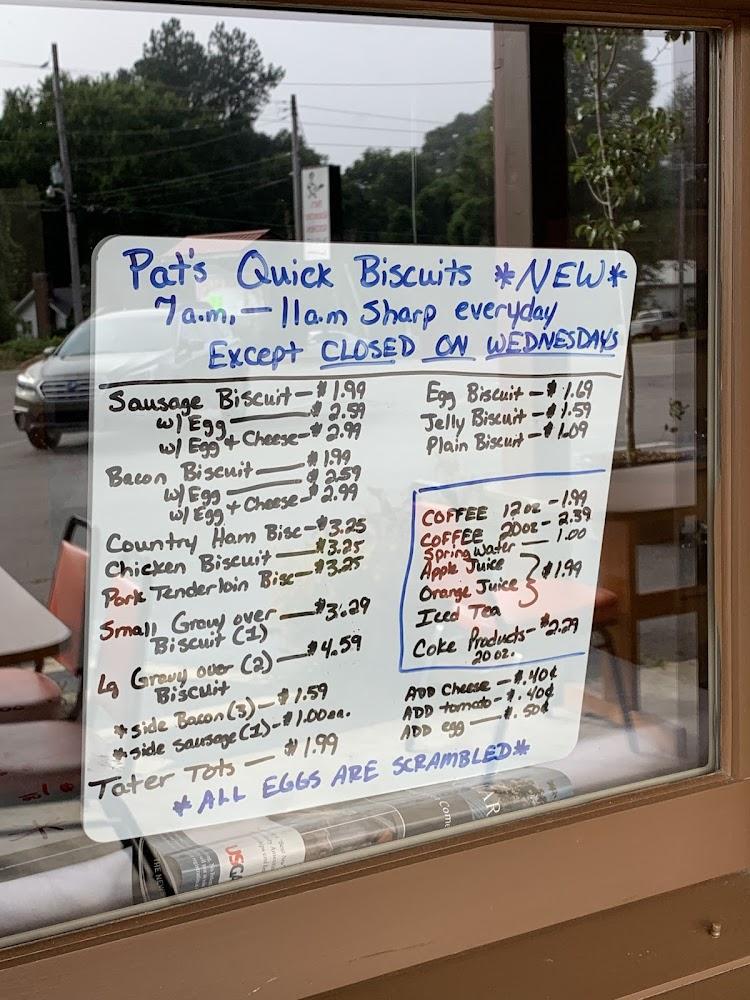 Pat's Quick Biscuits *NEW*
7a.m. — 11a.m Sharp everyday
Except CLOSED ON WEDNESDAYS
Sausage Biscuit — $1.99
w/ Egg — $2.59
w/ Egg + Cheese — $2.99
Bacon Biscuit — $1.99
w/ Egg — $2.59
w/ Egg + Cheese — $2.99
Country Ham Bisc — $3.25
Chicken Biscuit — $3.25
Pork Tenderloin Bisc — $3.25
Small Gravy over — $3.29
Biscuit (1)
Lg Gravy over (2) — $4.59
Biscuit
*side Bacon (3) — $1.59
*side sausage (1) — $1.00ea.
Tater Tots — $1.99
Egg Biscuit — $1.69
Jelly Biscuit — $1.59
Plain Biscuit — $1.09
COFFEE 12oz — 1.99
COFFEE 20oz — 2.39
Spring Water — 1.00
Apple Juice
Orange Juice } $1.99
Iced Tea
Coke Products — $2.29
20oz.
ADD Cheese — $.40¢
ADD tomato — $.40¢
ADD egg — $.50¢
*ALL EGGS ARE SCRAMBLED*
USGA